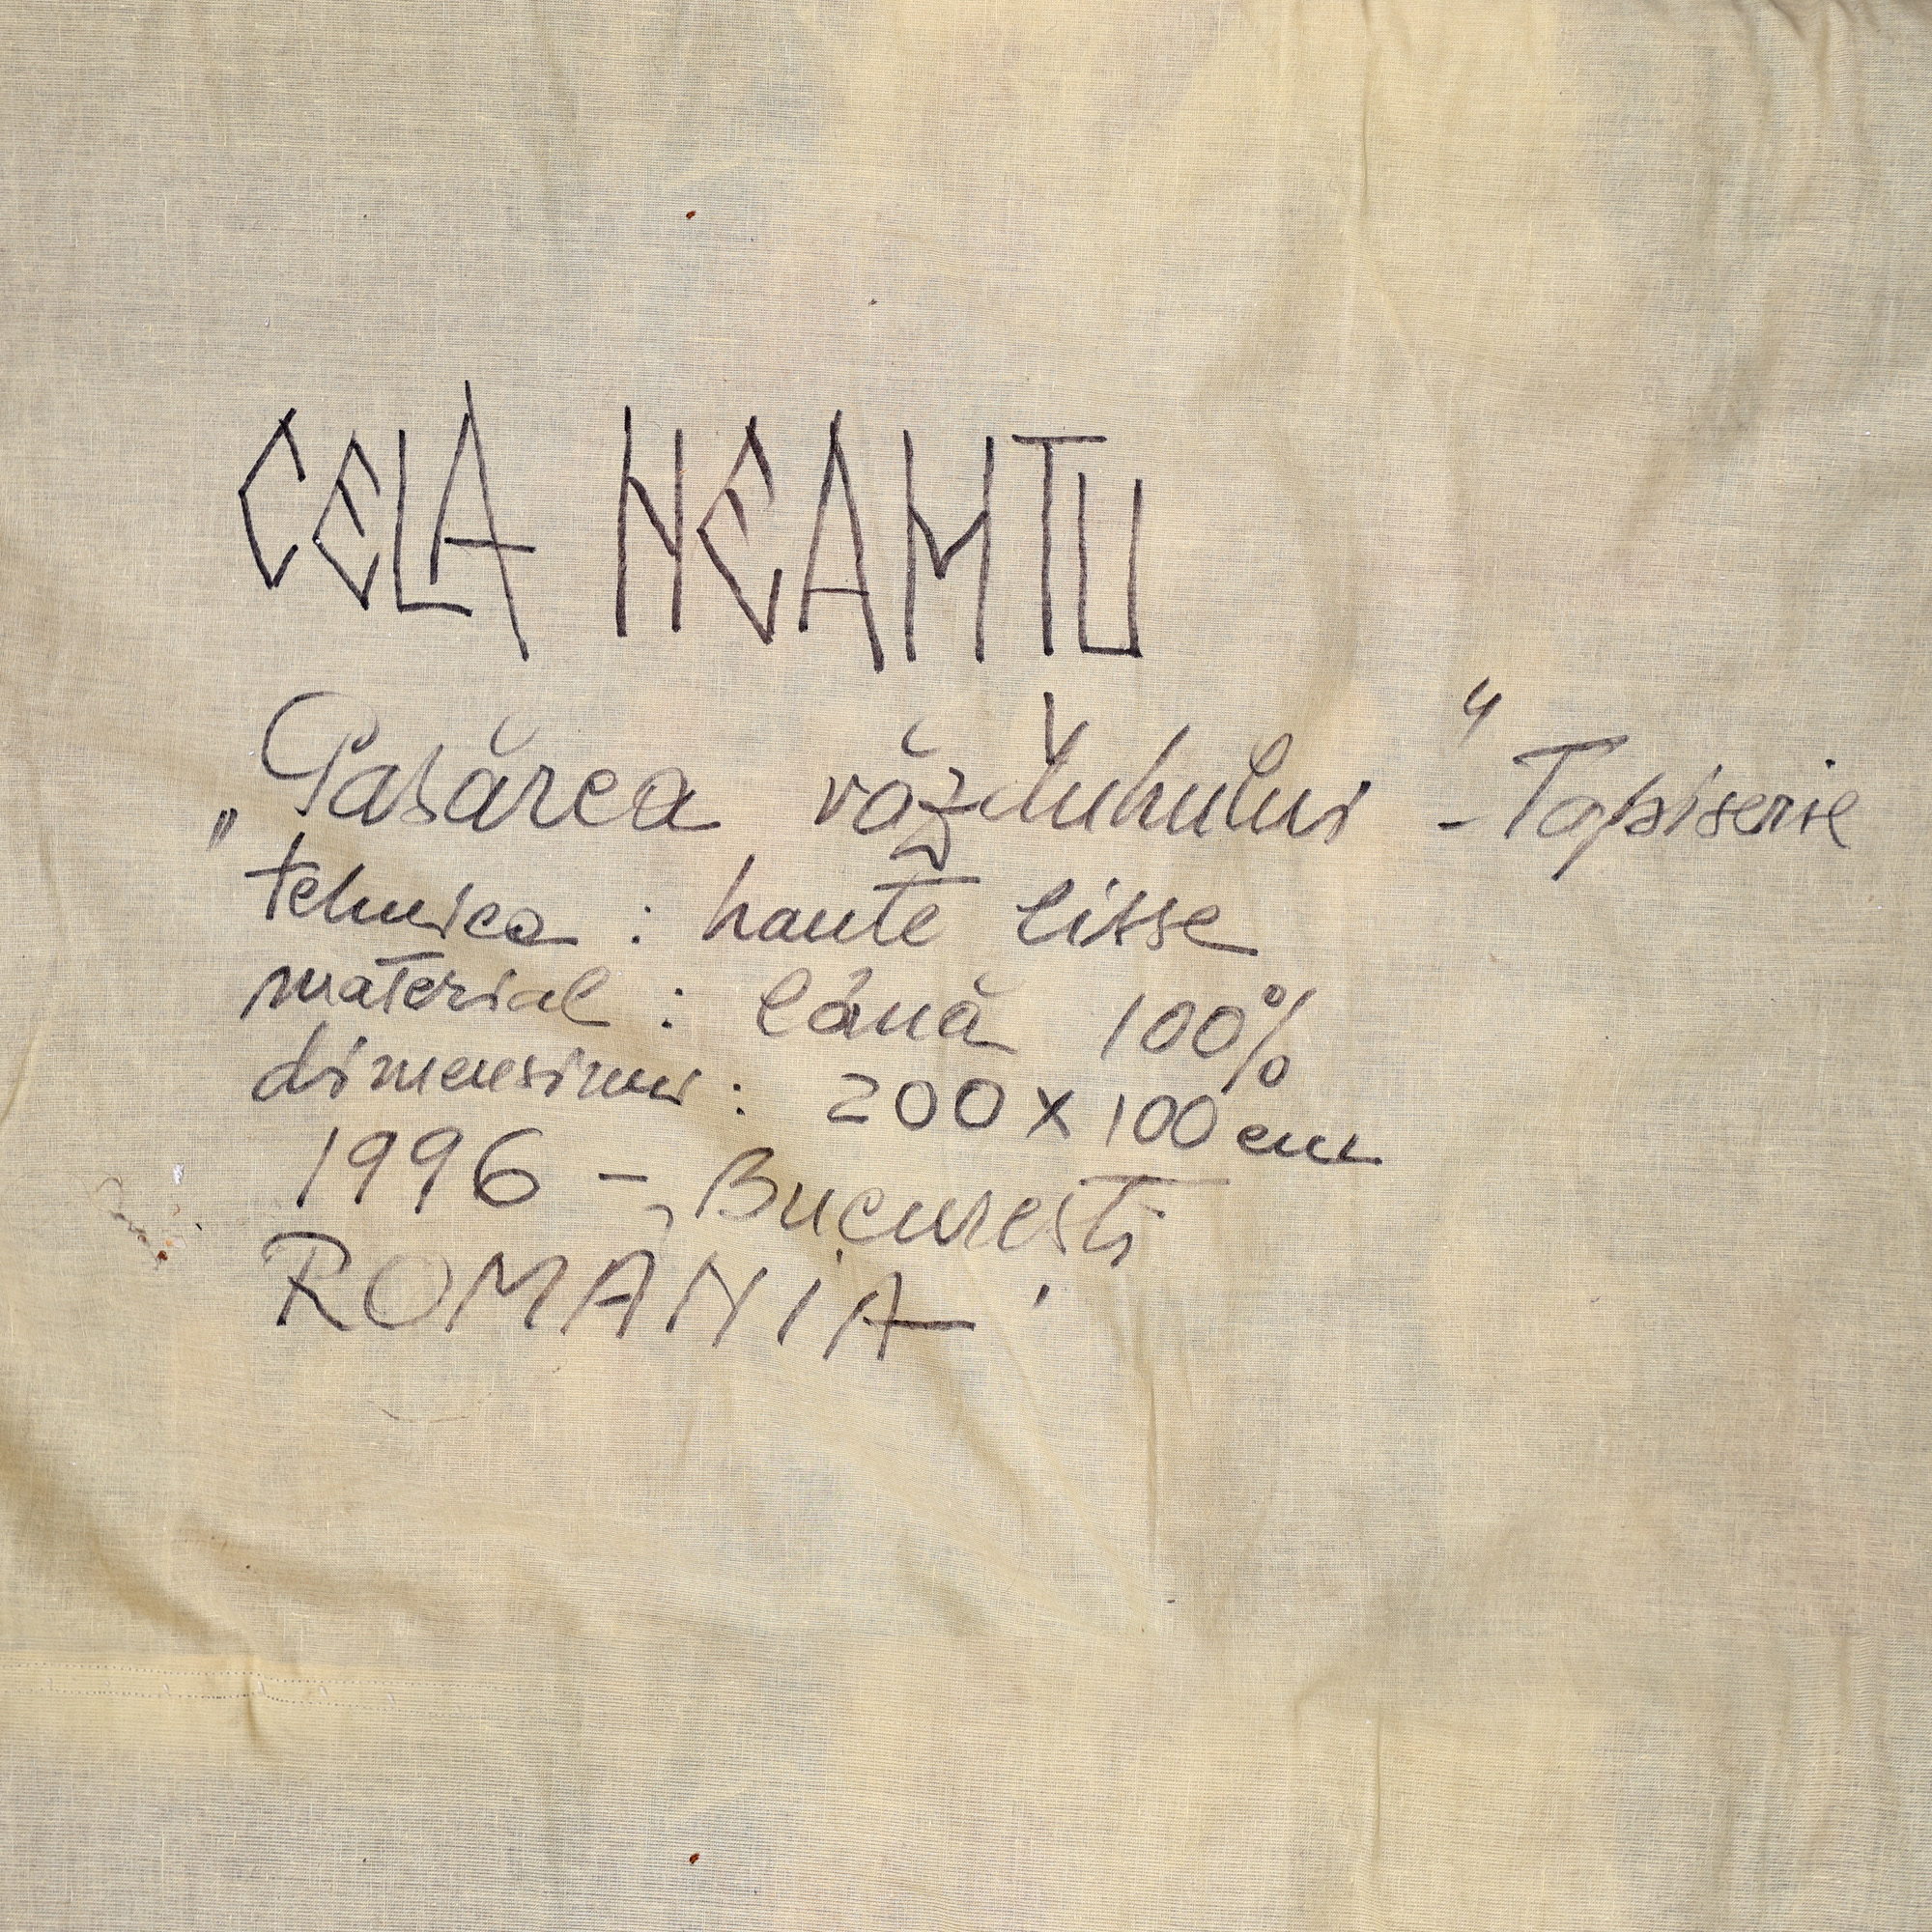 CELA NEAMȚU
„Pasărea văzduhului” - Tapiserie
tehnica : haute lisse
material : lână 100%
dimensiuni : 200 x 100 cm
1996 - București
ROMÂNIA